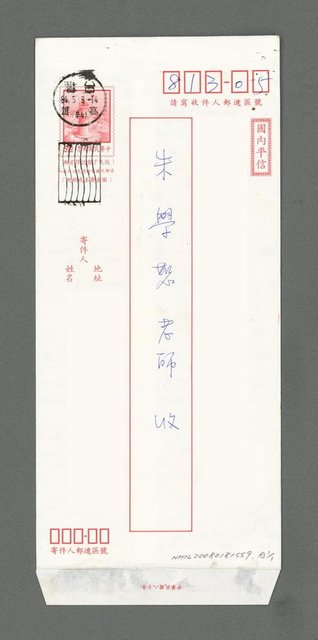 813-05
請寫收件人郵遞區號
國內平信
朱學恕老師 收
寄件人
地址
姓名
寄件人郵遞區號
中華民國八十年
NMTL20080181559